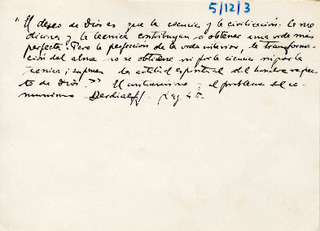 5/12/3
"El deseo de Dios es que la ciencia y la civilización, la me
dicina y la técnica contribuyan a obtener una vida más
perfecta. Pero la perfección de la vida interior, la transforma-
ción del alma no se obtiene ni por la ciencia ni por la
técnica; supone la actitud espiritual del hombre respec-
to de Dios." El cristianismo y el problema del co-
munismo Berdiaeff. Pag 45.